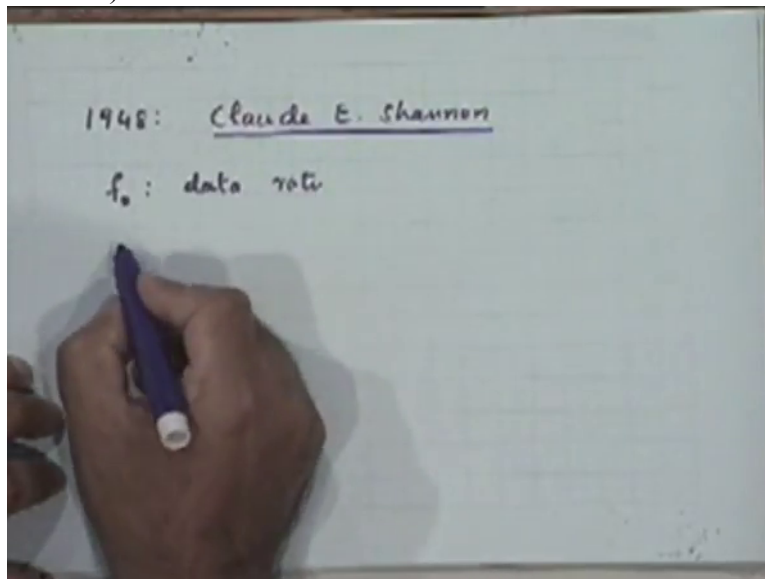 1948: Claude E. Shannon
f₀: data rate